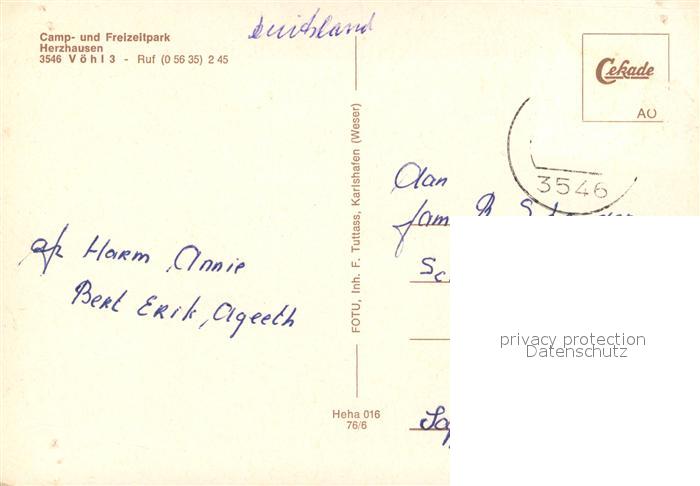 Camp- und Freizeitpark
Herzhausen
3546 Vöhl 3 - Ruf (0 56 35) 2 45
Duitsland
Cekade
AO
3546
FOTU, Inh. F. Tuttass, Karlshafen (Weser)
Aan
fam B.
Harm Annie
Bert Erik, Ageeth
Heha 016
76/6
privacy protection
Datenschutz